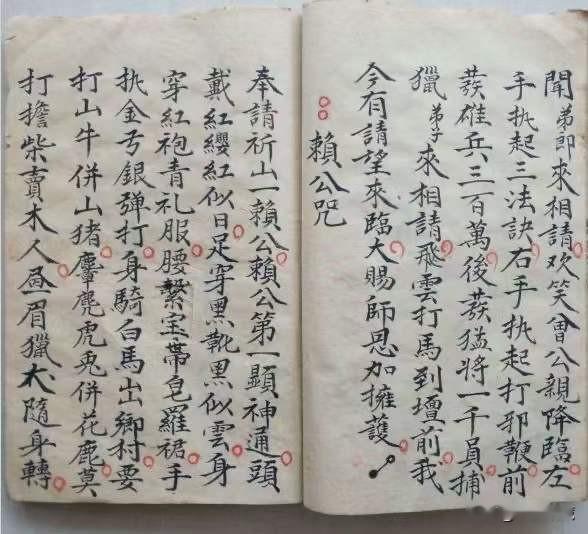 聞弟即來相請欢笑曾公親降臨左
手执起三法訣右手执起打邪鞭前
發雄兵三百萬後發猛将一千員捕
獵弟子來相請飛雲打馬到壇前我
今有請望來臨大賜師恩加擁護
賴公咒
奉請祈山一賴公賴公第一顯神通頭
戴紅纓紅似日足穿黑靴黑似雲身
穿紅袍青礼服腰繫宝帶皂羅裙手
执金弓銀弹打身騎白馬出鄉村要
打山牛併山猪麞麂虎兎併花鹿莫
打擔柴賣木人眉獵犬隨身轉